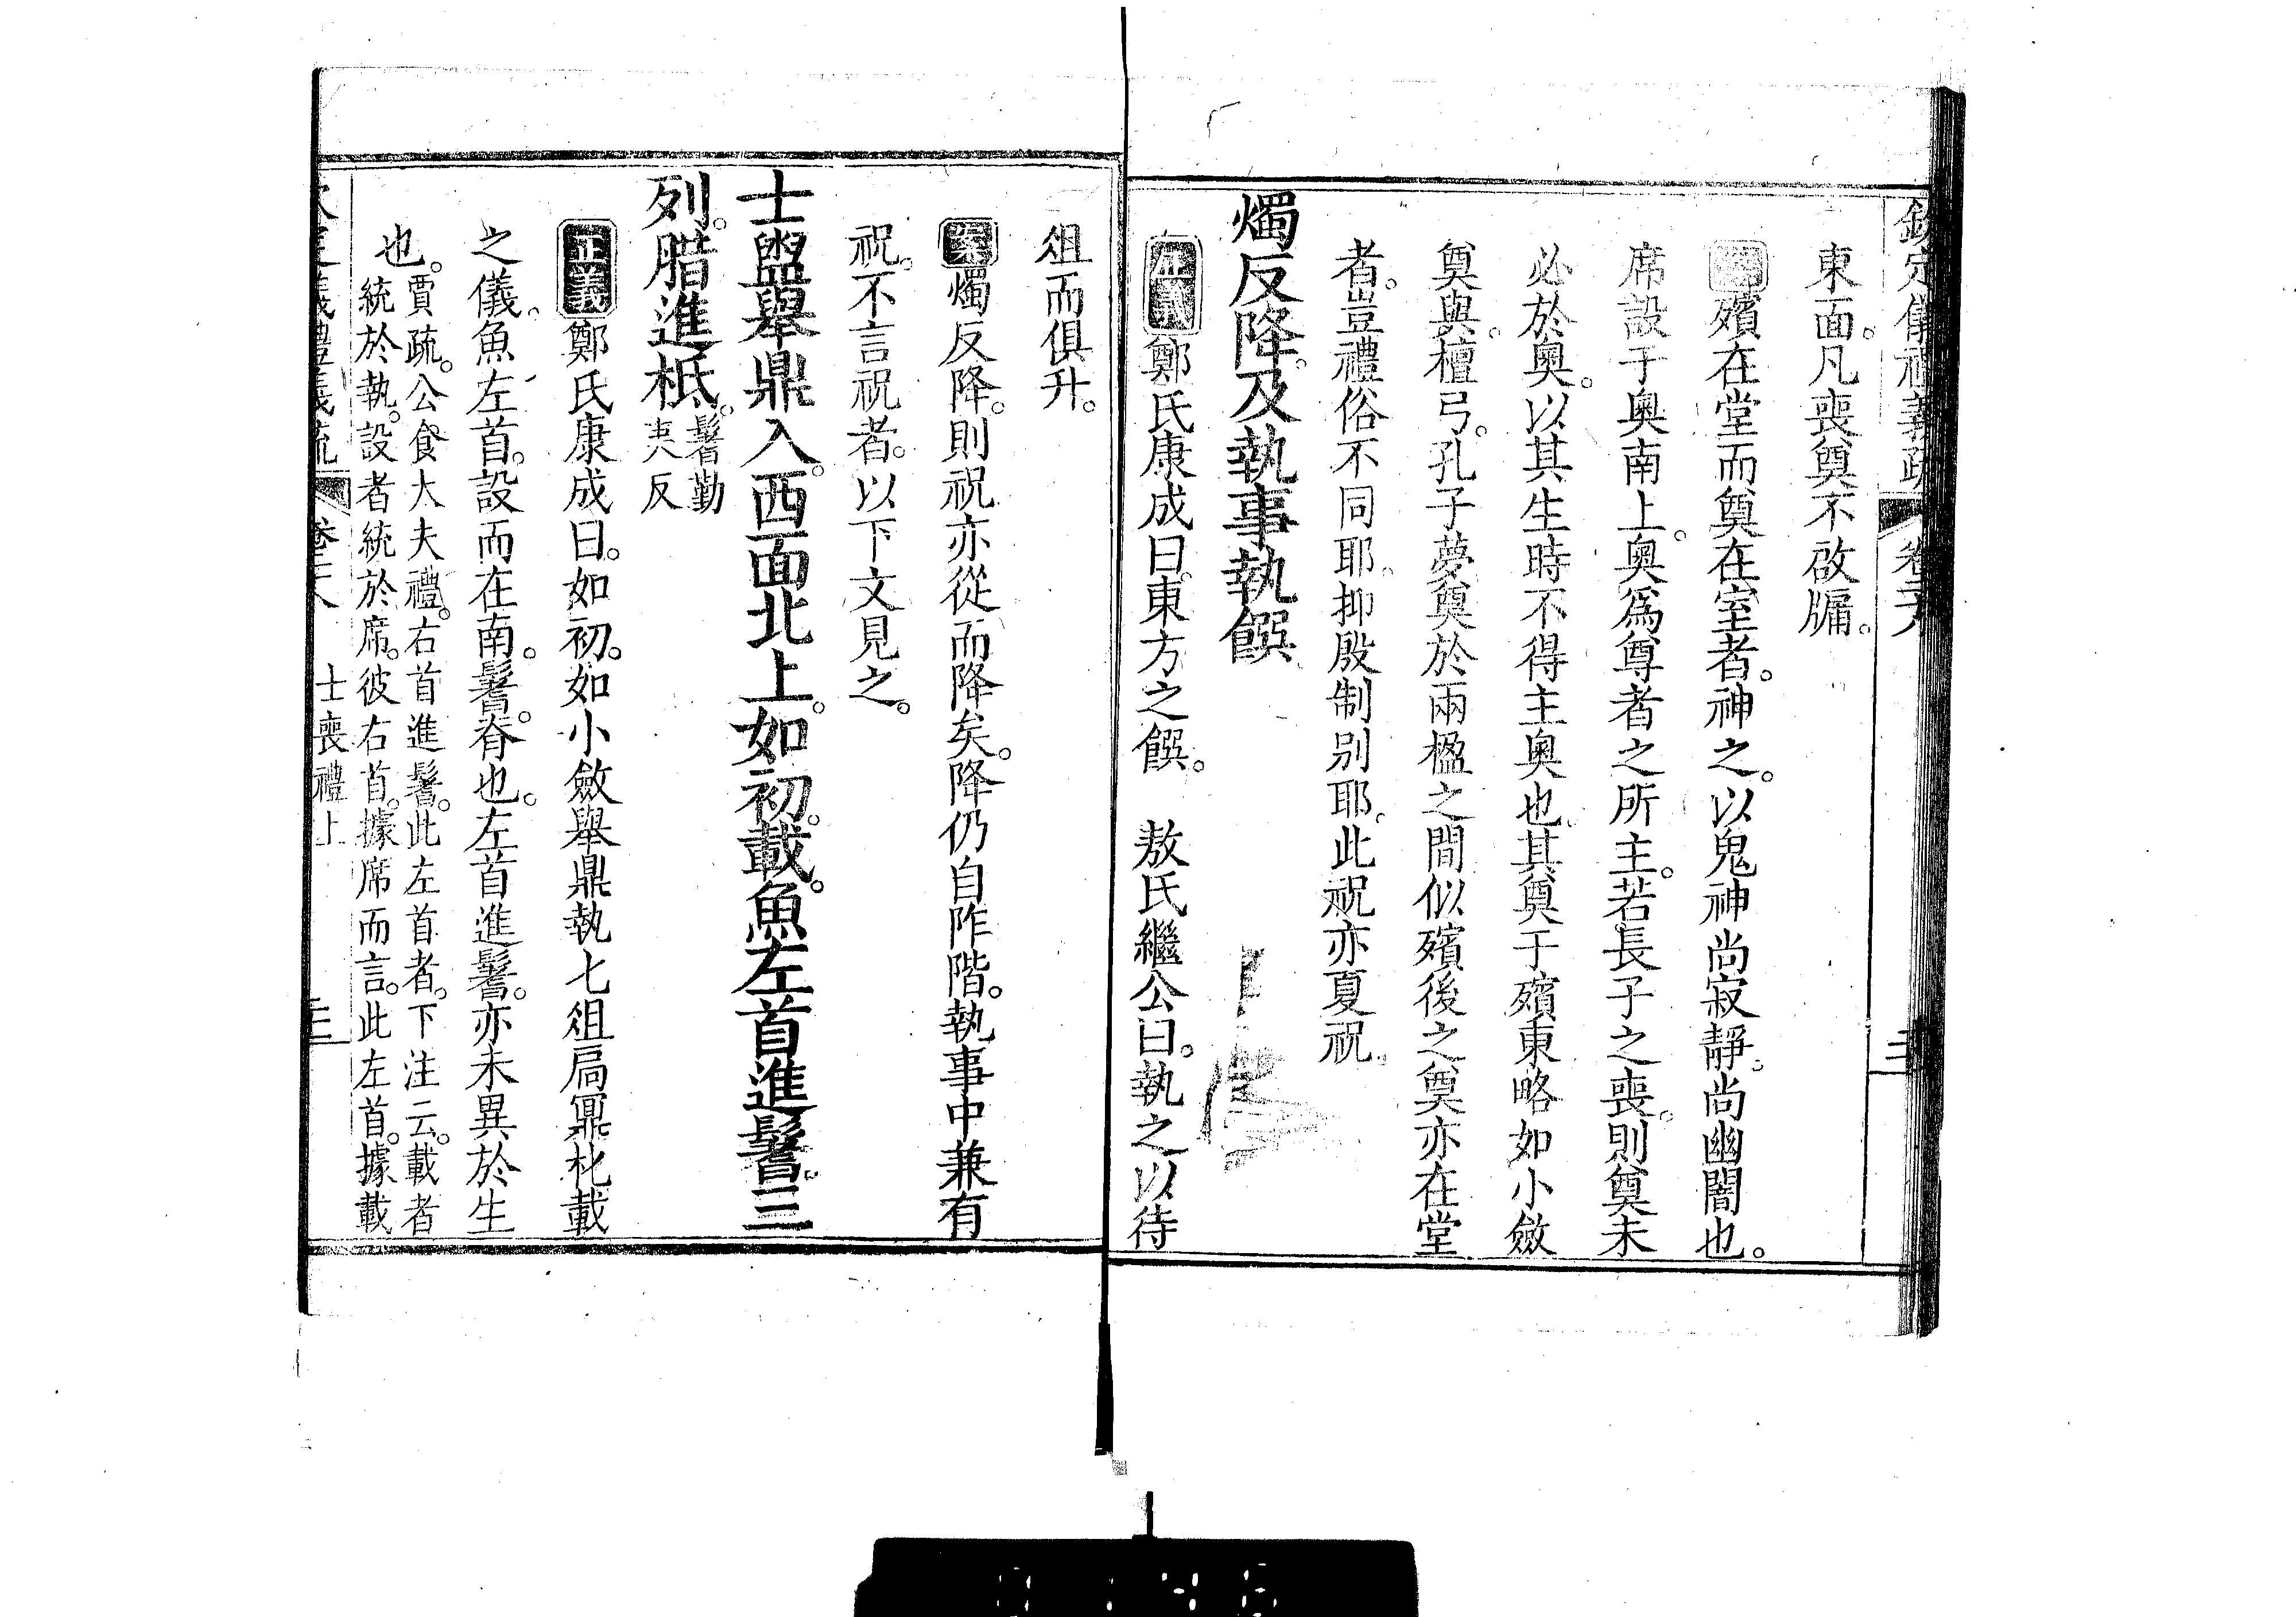 欽定儀禮義疏 卷二十八
東面。凡喪奠不啟牖。
殯在堂而奠在室者。神之。以鬼神尚寂靜。尚幽闇也。
席設于奧南上。奧爲尊者之所主。若長子之喪。則奠未
必於奧。以其生時不得主奧也。其奠于殯東略如小斂
奠與。檀弓。孔子夢奠於兩楹之間似殯後之奠亦在堂
者。豈禮俗不同耶。抑殷制别耶。此祝亦夏祝。
燭反降。及執事執饌
正義鄭氏康成曰。東方之饌。 敖氏繼公曰。執之以待
俎而俱升。
案燭反降。則祝亦從而降矣。降仍自阼階。執事中兼有
祝。不言祝者。以下文見之。
士盥舉鼎入。西面北上。如初。載。魚左首進鬐。三
列。腊進柢。鬐勤
夷反
正義鄭氏康成曰。如初。如小斂舉鼎執匕俎扃鼏朼載
之儀。魚左首。設而在南。鬐。脊也。左首進鬐。亦未異於生
也。賈疏。公食大夫禮。右首進鬐。此左首者。下注云。載者
統於執。設者統於席。彼右首。據席而言。此左首。據載
欽定儀禮義疏 卷二十八 士喪禮上